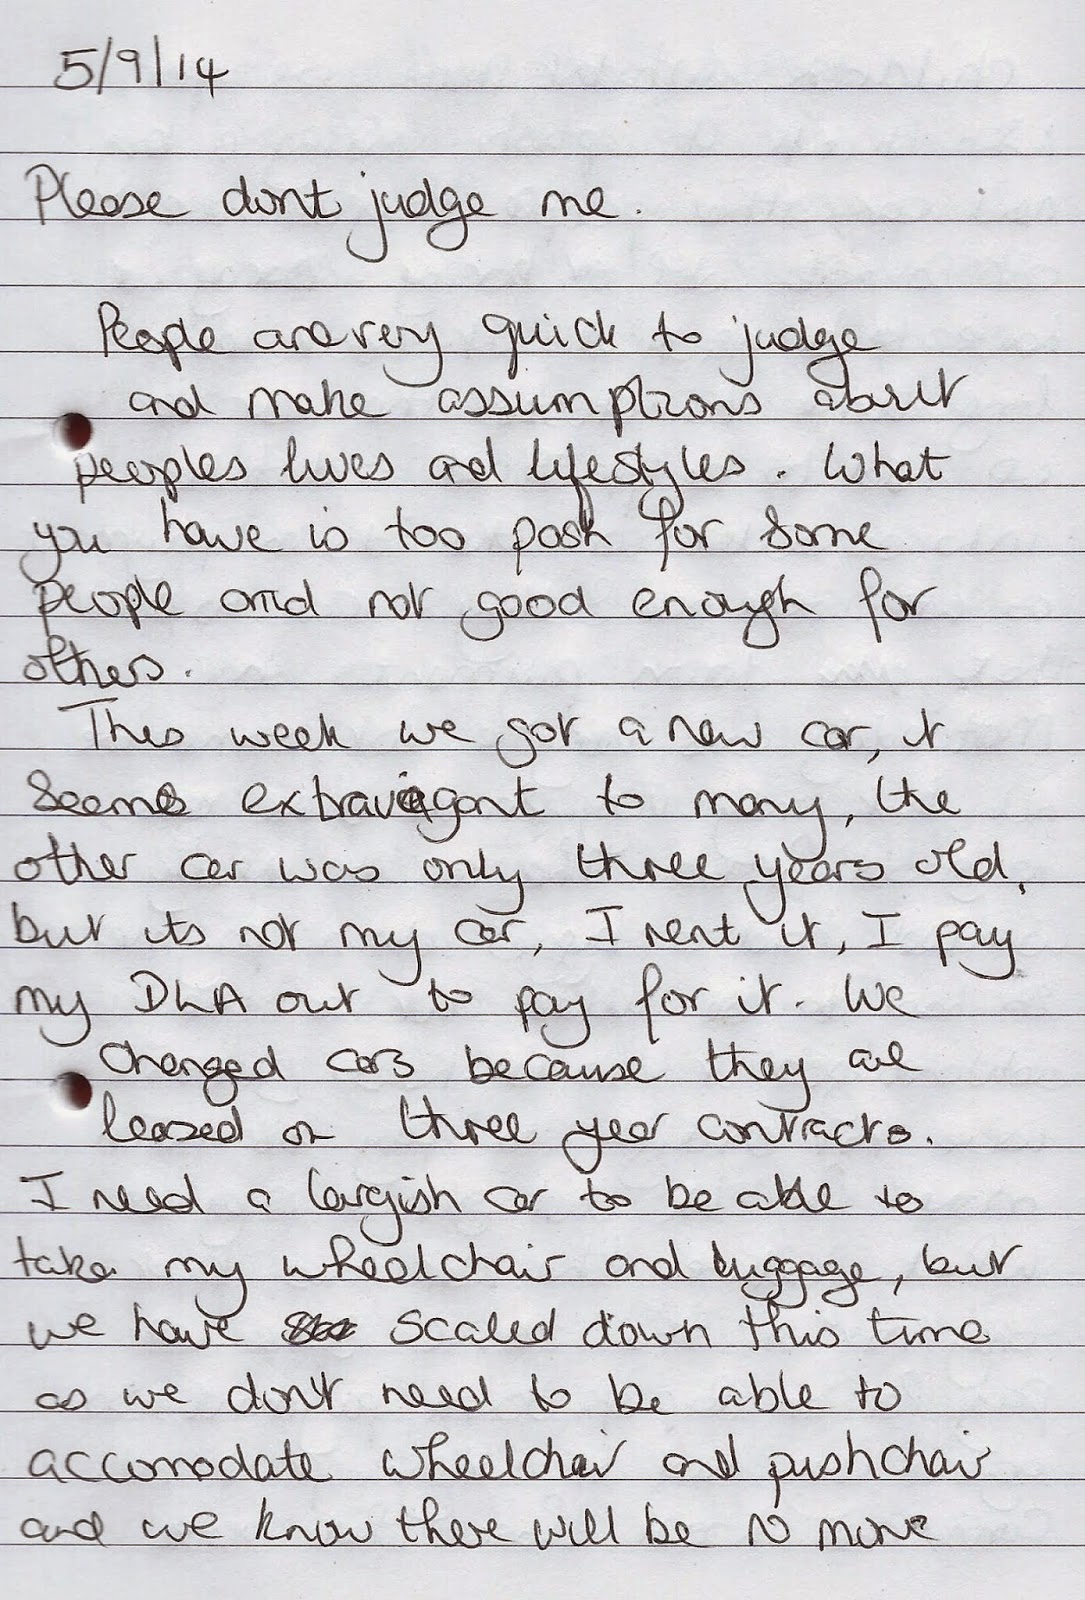 5/9/14
Please dont judge me.
People are very quick to judge
and make assumptions about
peoples lives and lifestyles. What
you have is too posh for some
people and not good enough for
others.
This week we got a new car, it
seems extravagant to many, the
other car was only three years old,
but its not my car, I rent it, I pay
my DLA out to pay for it. We
changed cars because they are
leased on three year contracts.
I need a largish car to be able to
take my wheelchair and luggage, but
we have scaled down this time
as we don't need to be able to
accomodate wheelchair and pushchair
and we know there will be no more